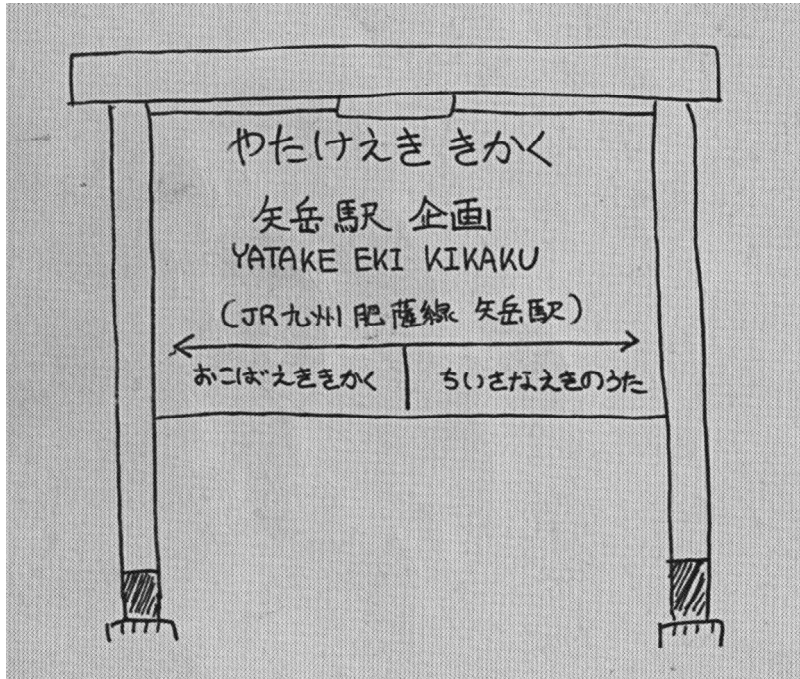 やたけえき きかく
矢岳駅 企画
YATAKE EKI KIKAKU
(JR九州 肥薩線 矢岳駅)
おこばえききかく ちいさなえきのうた